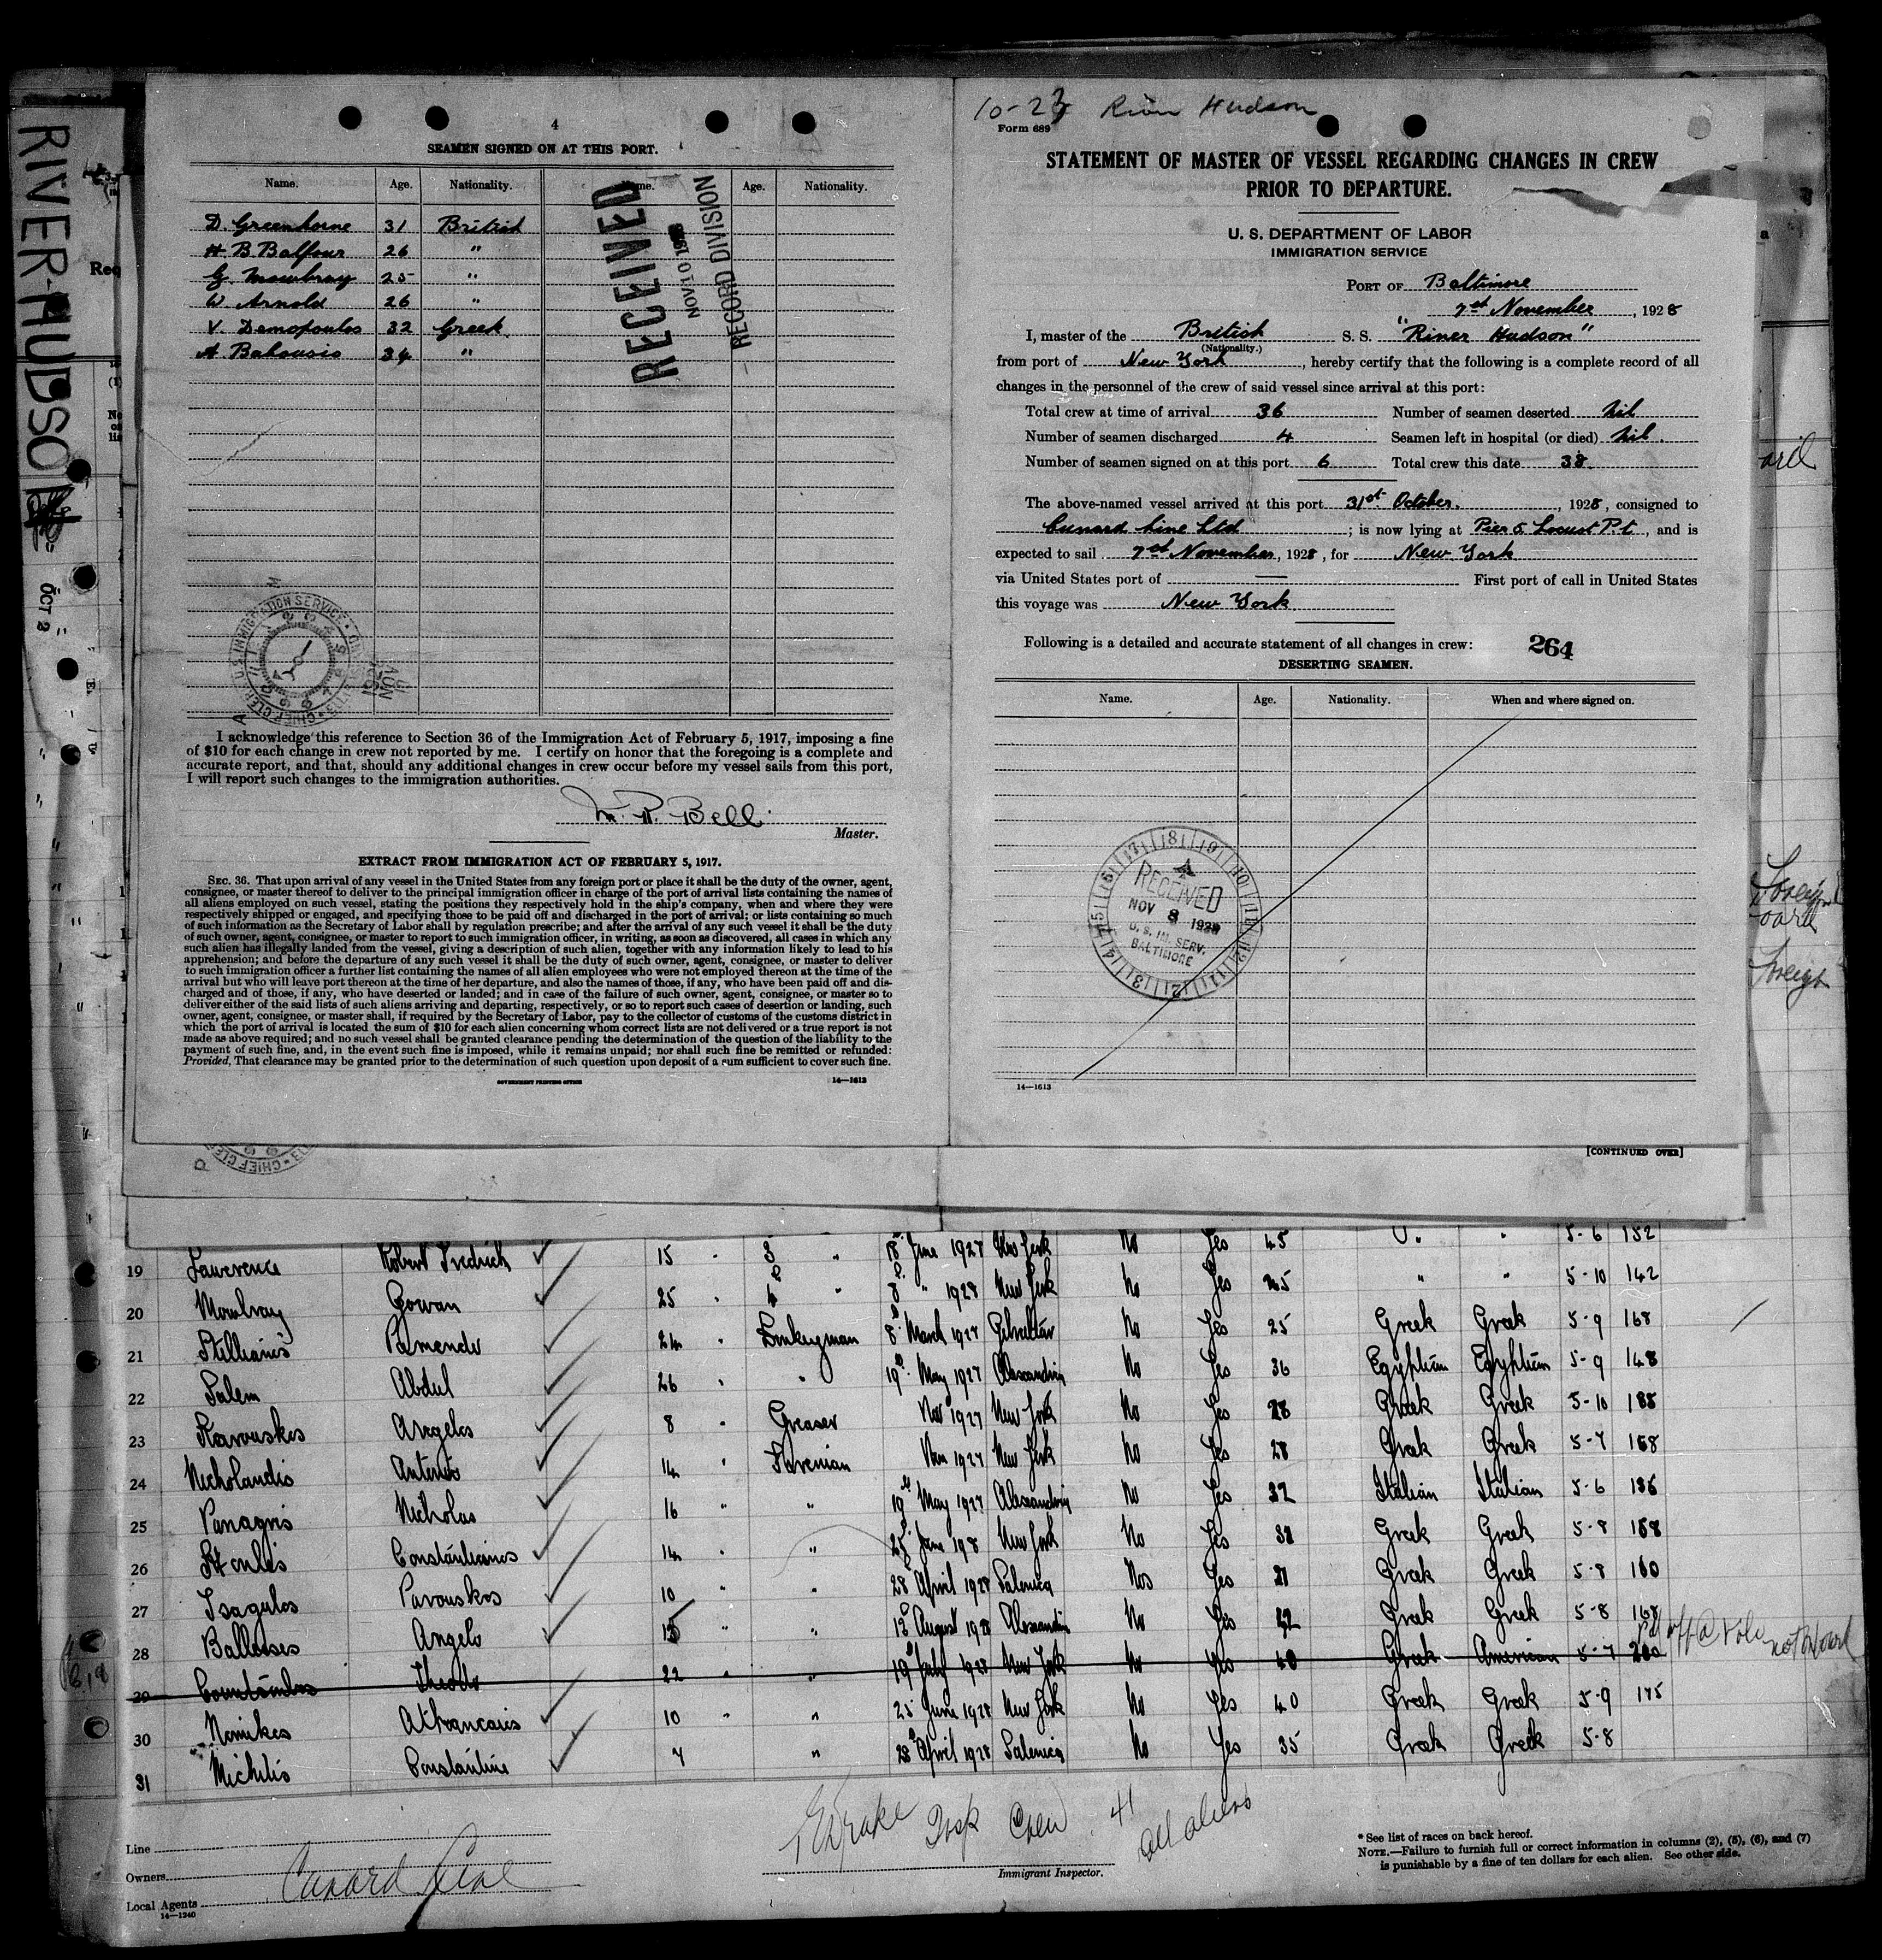 RIVER HUDSON
OCT 2
4
SEAMEN SIGNED ON AT THIS PORT.
Name. Age. Nationality. Name. Age. Nationality.
D. Greenhorne 31 British
H B Balfour 26 "
G. Mowbray 25 "
W Arnold 26 "
V. Demopoulos 32 Greek
A Bahousis 34 "
RECEIVED
NOV 10 1928
RECORD DIVISION
I acknowledge this reference to Section 36 of the Immigration Act of February 5, 1917, imposing a fine
of $10 for each change in crew not reported by me. I certify on honor that the foregoing is a complete and
accurate report, and that, should any additional changes in crew occur before my vessel sails from this port,
I will report such changes to the immigration authorities.
R. Bell
Master.
EXTRACT FROM IMMIGRATION ACT OF FEBRUARY 5, 1917.
SEC. 36. That upon arrival of any vessel in the United States from any foreign port or place it shall be the duty of the owner, agent,
consignee, or master thereof to deliver to the principal immigration officer in charge of the port of arrival lists containing the names of
all aliens employed on such vessel, stating the positions they respectively hold in the ship's company, when and where they were
respectively shipped or engaged, and specifying those to be paid off and discharged in the port of arrival; or lists containing so much
of such information as the Secretary of Labor shall by regulation prescribe; and after the arrival of any such vessel it shall be the duty
of such owner, agent, consignee, or master to report to such immigration officer, in writing, as soon as discovered, all cases in which any
such alien has illegally landed from the vessel, giving a description of such alien, together with any information likely to lead to his
apprehension; and before the departure of any such vessel it shall be the duty of such owner, agent, consignee, or master to deliver
to such immigration officer a further list containing the names of all alien employees who were not employed thereon at the time of the
arrival but who will leave port thereon at the time of her departure, and also the names of those, if any, who have been paid off and dis-
charged and of those, if any, who have deserted or landed; and in case of the failure of such owner, agent, consignee, or master so to
deliver either of the said lists of such aliens arriving and departing, respectively, or so to report such cases of desertion or landing, such
owner, agent, consignee, or master shall, if required by the Secretary of Labor, pay to the collector of customs of the customs district in
which the port of arrival is located the sum of $10 for each alien concerning whom correct lists are not delivered or a true report is not
made as above required; and no such vessel shall be granted clearance pending the determination of the question of the liability to the
payment of such fine, and, in the event such fine is imposed, while it remains unpaid; nor shall such fine be remitted or refunded:
Provided, That clearance may be granted prior to the determination of such question upon deposit of a sum sufficient to cover such fine.
GOVERNMENT PRINTING OFFICE 14—1613
10-23 River Hudson
Form 689
STATEMENT OF MASTER OF VESSEL REGARDING CHANGES IN CREW
PRIOR TO DEPARTURE.
U. S. DEPARTMENT OF LABOR
IMMIGRATION SERVICE
PORT OF Baltimore
7th November, 1928
I, master of the British S. S. "River Hudson"
(Nationality.)
from port of New York, hereby certify that the following is a complete record of all
changes in the personnel of the crew of said vessel since arrival at this port:
Total crew at time of arrival 36 Number of seamen deserted Nil
Number of seamen discharged 4 Seamen left in hospital (or died) Nil.
Number of seamen signed on at this port 6 Total crew this date 38
The above-named vessel arrived at this port 31st October., 1928, consigned to
Cunard Line Ltd; is now lying at Pier 5 Locust Pt, and is
expected to sail 7th November, 1928, for New York
via United States port of — First port of call in United States
this voyage was New York
Following is a detailed and accurate statement of all changes in crew: 264
DESERTING SEAMEN.
Name. Age. Nationality. When and where signed on.
RECEIVED
NOV 8 1928
U. S. IM. SERV.
BALTIMORE
14—1613
[CONTINUED OVER]
19 Lawerence Robert Fredrick 15 " 3 " 18 June 1927 New York No Yes 45 " " 5-6 152
20 Mowbray Gowan 25 " 4 " 8 " 1928 New York No Yes 25 " " 5-10 142
21 Stillianis Pamendo 24 " Donkeyman 8 March 1927 Gibraltar No Yes 25 Greek Greek 5-9 168
22 Salem Abdul 26 " " 19 May 1927 Alexandria No Yes 36 Egyptian Egyptian 5-9 148
23 Karouskis Angelos 8 " Greaser Nov 1927 New York No Yes 28 Greek Greek 5-10 188
24 Nicholandis Antonio 14 " Fireman Nov 1927 New York No Yes 28 Greek Greek 5-7 158
25 Panagris Nicholas 16 " " 19 May 1927 Alexandria No Yes 32 Italian Italian 5-6 135
26 Constantinos 14 " " 25 June 198 New York No Yes 31 Greek Greek 5-8 158
27 Tsagulos Parouskos 10 " " 28 April 1928 Salonica Nos Yes 21 Greek Greek 5-8 160
28 Ballouses Angelo 15 " " 12 August 1928 Alexandria No Yes 42 Greek Greek 5-8 168
29 Theodo 22 " " 19 July 1928 New York No Yes 40 Greek American 5-7 200 not on board
30 Nomikos Athanasis 10 " " 25 June 1928 New York No Yes 40 Greek Greek 5-9 175
31 Michilis Constantine 7 " 28 April 1928 Salonica No Yes 35 Greek Greek 5-8
Line
Owners
Local Agents Cunard Line
14—1240
Insp Crew 41
all aliens
Immigrant Inspector.
* See list of races on back hereof.
NOTE.—Failure to furnish full or correct information in columns (2), (5), (6), and (7)
is punishable by a fine of ten dollars for each alien. See other side.